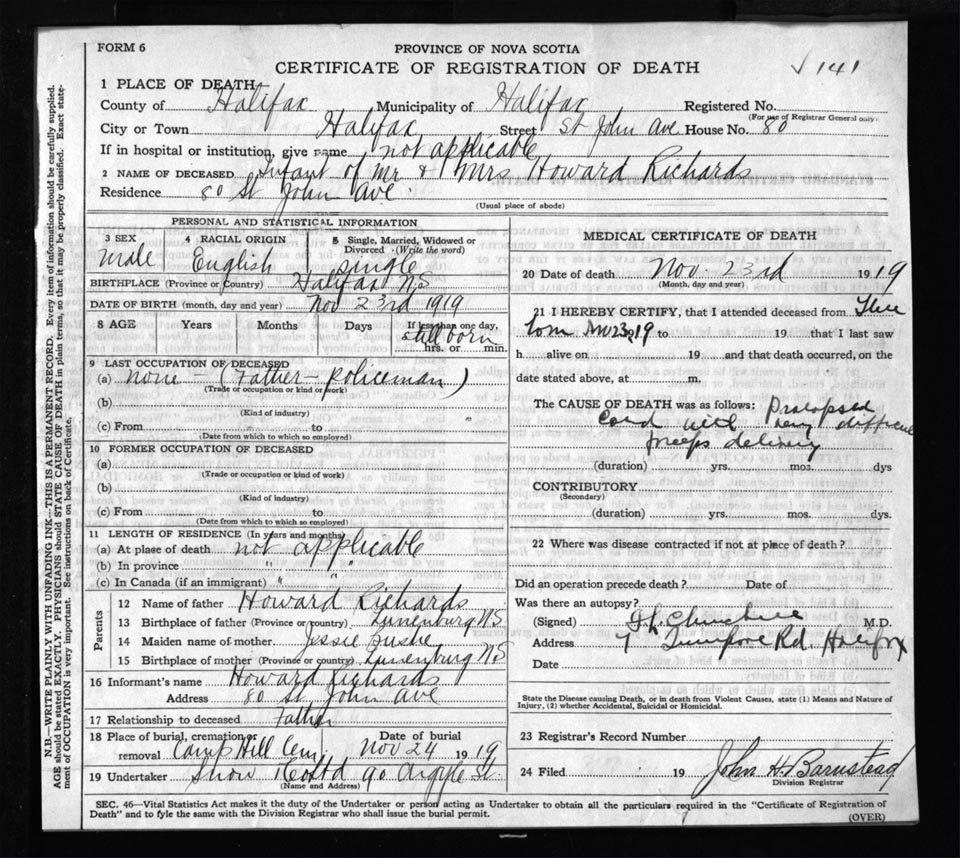 FORM 6
PROVINCE OF NOVA SCOTIA
CERTIFICATE OF REGISTRATION OF DEATH
141
1 PLACE OF DEATH
County of Halifax Municipality of Halifax Registered No.
(For use of Registrar General only)
City or Town Halifax Street St John Ave House No. 80
If in hospital or institution, give name not applicable
2 NAME OF DECEASED Infant of Mr & Mrs Howard Richards
Residence 80 St John Ave
(Usual place of abode)
PERSONAL AND STATISTICAL INFORMATION
3 SEX 4 RACIAL ORIGIN 5 Single, Married, Widowed or Divorced (Write the word)
Male English single
BIRTHPLACE (Province or Country) Halifax NS
DATE OF BIRTH (month, day and year) Nov 23rd 1919
8 AGE Years Months Days If less than one day,
still born
hrs. or min.
9 LAST OCCUPATION OF DECEASED
(a) none - (Father - policeman)
(Trade or occupation or kind of work)
(b)
(Kind of industry)
(c) From to
(Date from which to which so employed)
10 FORMER OCCUPATION OF DECEASED
(a)
(Trade or occupation or kind of work)
(b)
(Kind of industry)
(c) From to
(Date from which to which so employed)
11 LENGTH OF RESIDENCE (In years and months)
(a) At place of death not applicable
(b) In province " "
(c) In Canada (if an immigrant) " "
Parents
12 Name of father Howard Richards
13 Birthplace of father (Province or country) Lunenburg NS
14 Maiden name of mother Jessie
15 Birthplace of mother (Province or country) Lunenburg NS
16 Informant's name Howard Richards
Address 80 St John Ave
17 Relationship to deceased Father
18 Place of burial, cremation or removal Camp Hill Cem. Date of burial Nov 24 1919
19 Undertaker Snow & Co Ltd 90 Argyle St.
(Name and Address)
MEDICAL CERTIFICATE OF DEATH
20 Date of death Nov. 23rd 1919
(Month, day and year)
21 I HEREBY CERTIFY, that I attended deceased from
born Nov 23, 19 to 19 that I last saw
h alive on 19 and that death occurred, on the
date stated above, at m.
The CAUSE OF DEATH was as follows: Prolapsed
Cord with very difficult
forceps delivery
(duration) yrs. mos. dys
CONTRIBUTORY
(Secondary)
(duration) yrs. mos. dys.
22 Where was disease contracted if not at place of death?
Did an operation precede death? Date of
Was there an autopsy?
(Signed) M.D.
Address Rd. Halifax
Date
State the Disease causing Death, or in death from Violent Causes, state (1) Means and Nature of
Injury, (2) whether Accidental, Suicidal or Homicidal.
23 Registrar's Record Number
24 Filed 19 John H. Barnstead
Division Registrar
SEC. 46—Vital Statistics Act makes it the duty of the Undertaker or person acting as Undertaker to obtain all the particulars required in the "Certificate of Registration of
Death" and to fyle the same with the Division Registrar who shall issue the burial permit.
(OVER)
N.B.—WRITE PLAINLY WITH UNFADING INK—THIS IS A PERMANENT RECORD. Every item of information should be carefully supplied.
AGE should be stated EXACTLY. PHYSICIANS should STATE CAUSE OF DEATH in plain terms, so that it may be properly classified. Exact state-
ment of OCCUPATION is very important. See instructions on back of Certificate.